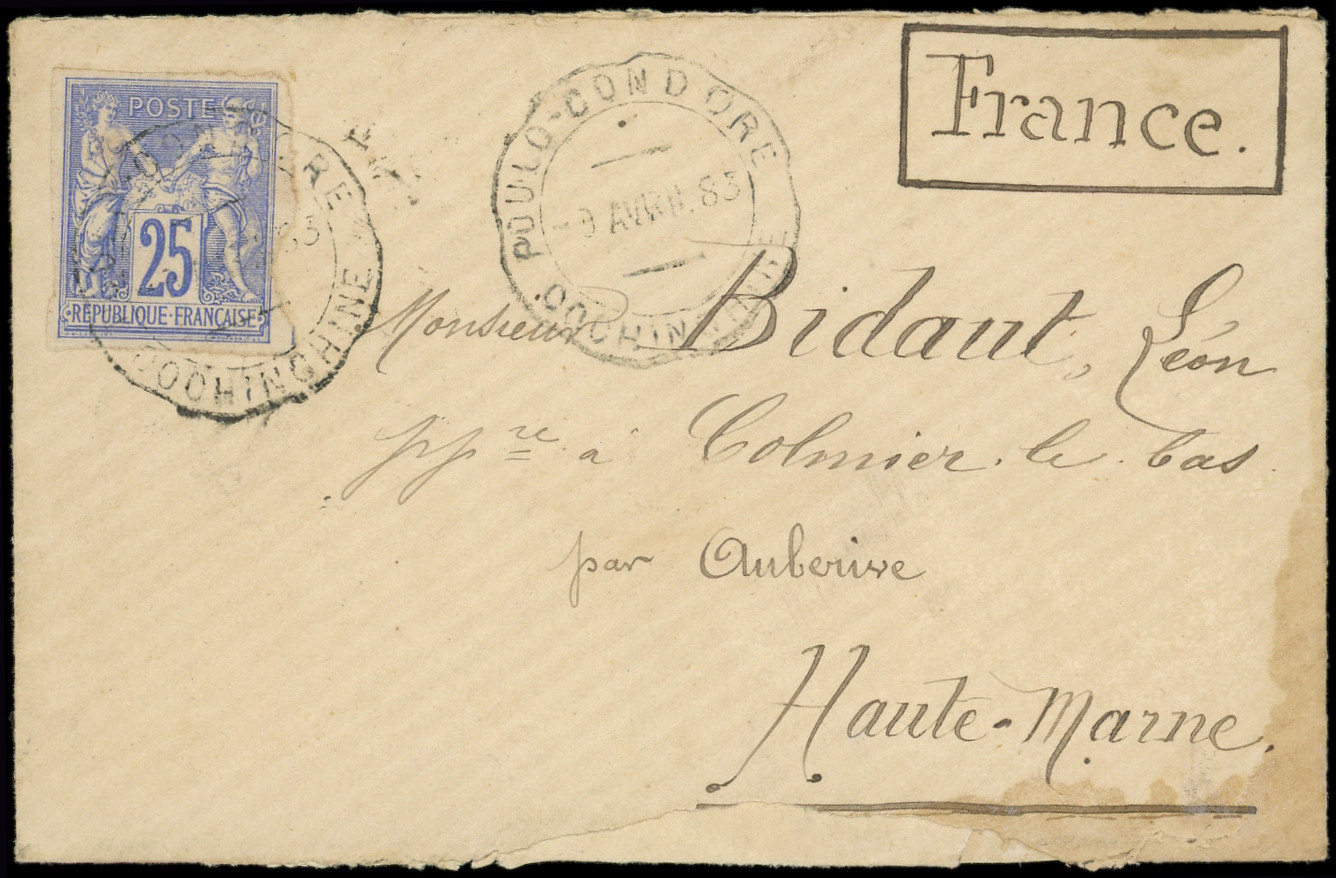 POSTE
25
RÉPUBLIQUE·FRANÇAISE
COCHINCHINE
POULO-CONDORE
9 AVRIL 83
COCHINCHINE
France.
Monsieur Bidaut, Léon
ppre à Colmier-le-bas
par Auberive
Haute-Marne.